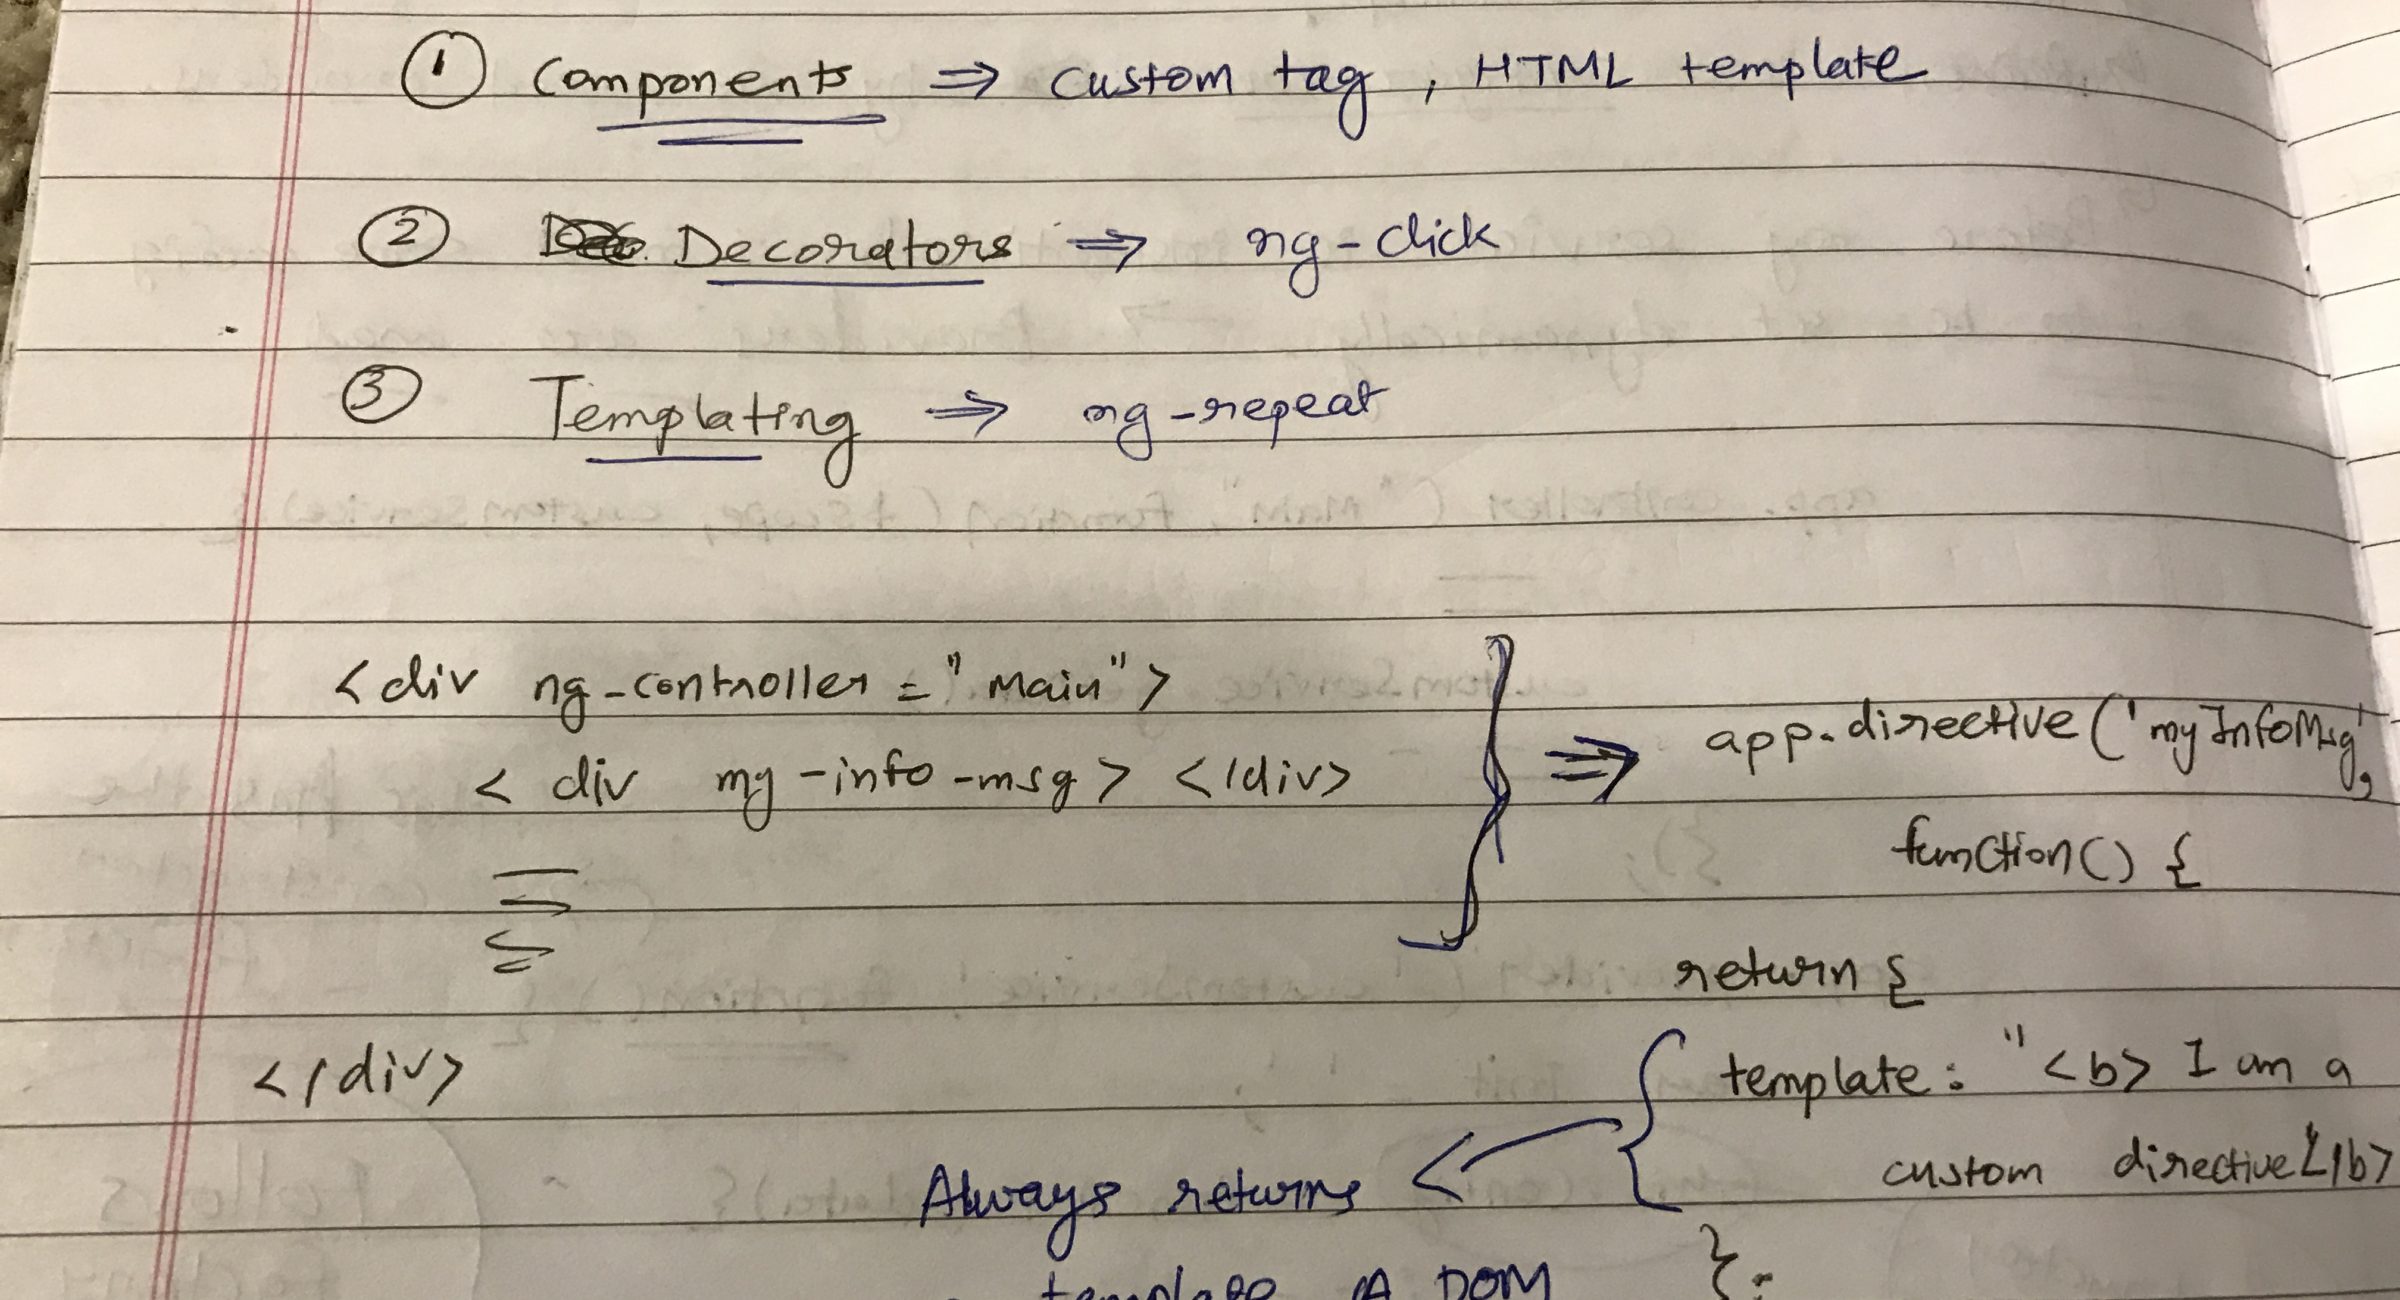 ① Components ⇒ custom tag, HTML template
② Decorators ⇒ ng-click
③ Templating ⇒ ng-repeat
<div ng-controller = "Main">
<div my-info-msg> </div>
</div>
⇒ app.directive('myInfoMsg',
function() {
return {
template: "<b> I am a
custom directive</b>
};
Always returns
template A DOM